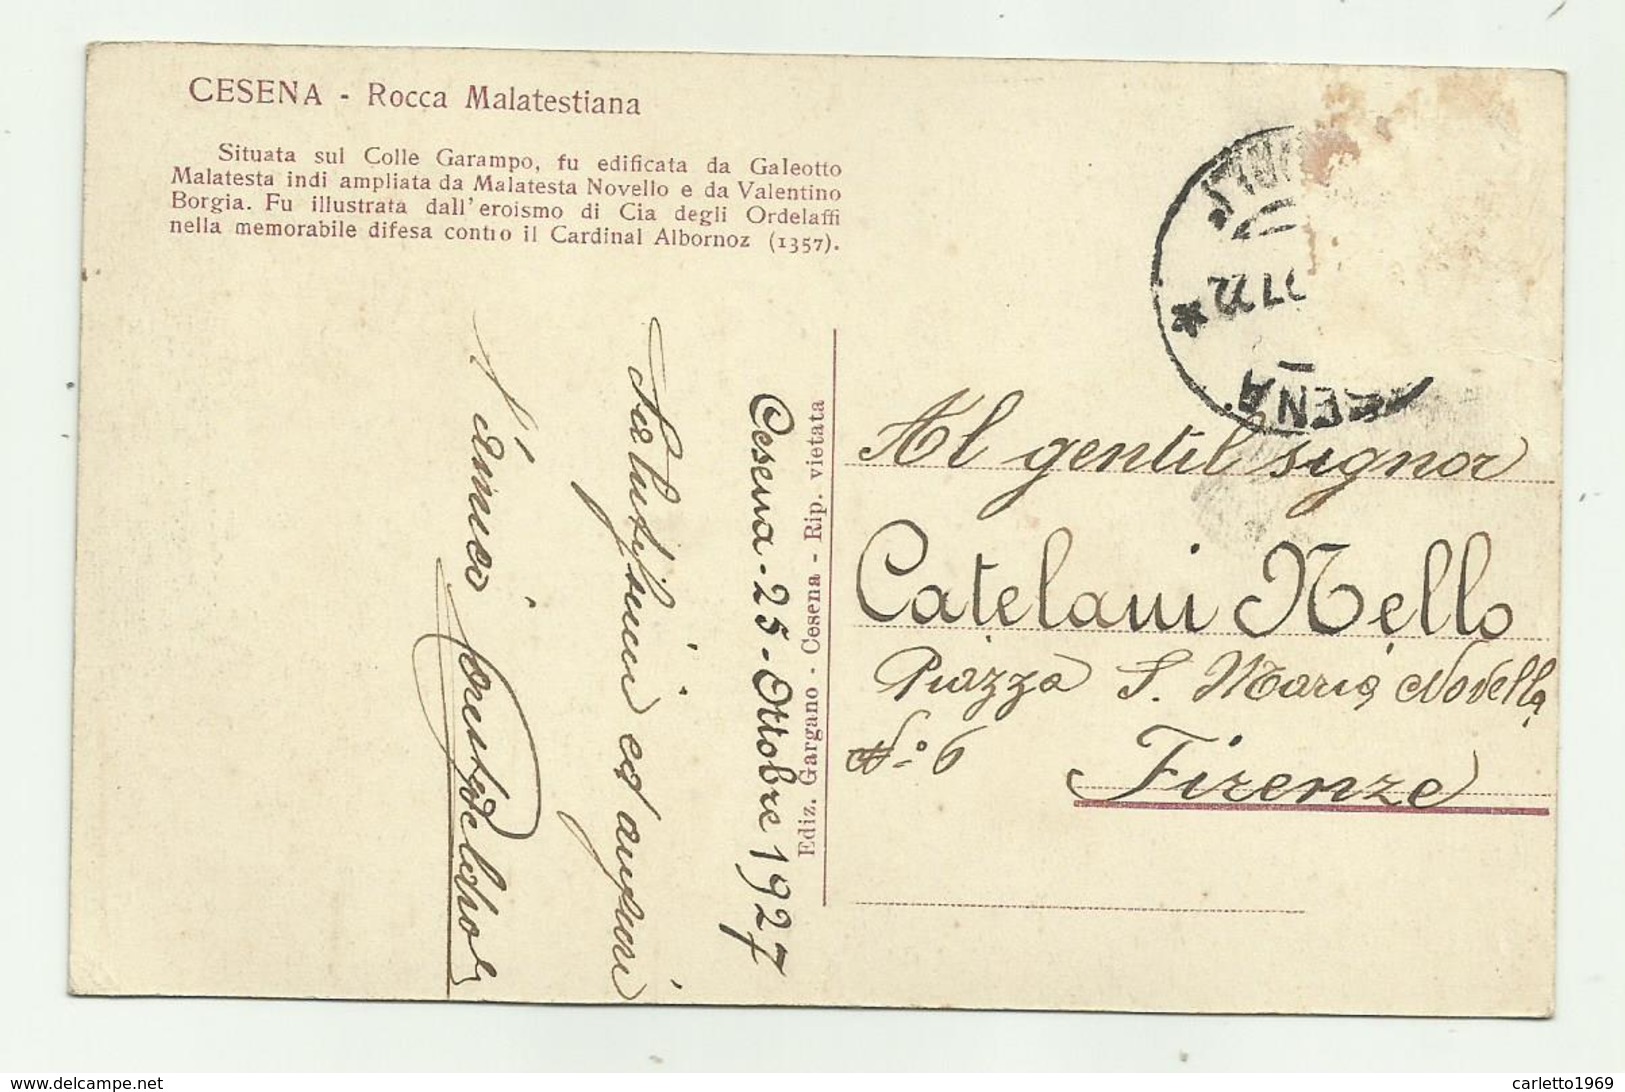 CESENA - Rocca Malatestiana
Situata sul Colle Garampo, fu edificata da Galeotto
Malatesta indi ampliata da Malatesta Novello e da Valentino
Borgia. Fu illustrata dall'eroismo di Cia degli Ordelaffi
nella memorabile difesa contro il Cardinal Albornoz (1357).
Ediz. Gargano - Cesena - Rip. vietata
Cesena - 25 - Ottobre 1927
Salutissimi ed auguri
l'amico
Al gentil signor
Catelani Nello
Piazza S. Maria Novella
N.° 6
Firenze
carletto1969
www.delcampe.net